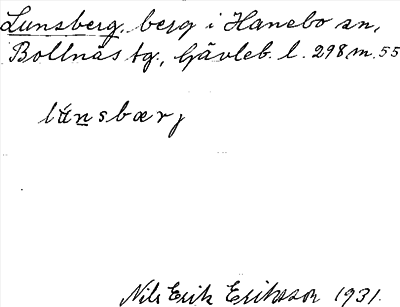 Lunsberg, berg i Hanebo sn,
Bollnäs tg., Gävleb. l. 298 m. 55
lúnsbærj
Nils Erik Eriksson 1931.